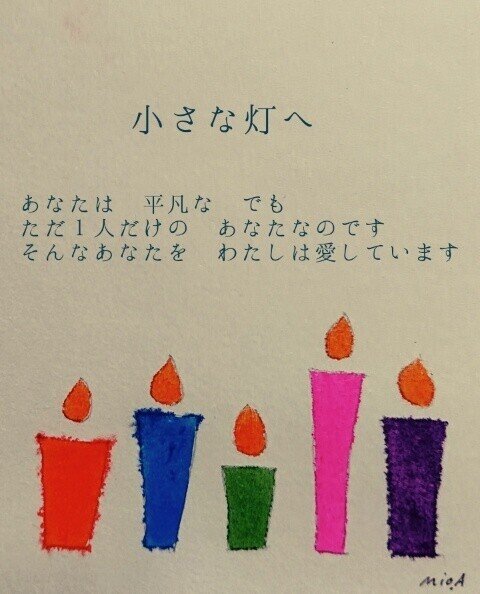 小さな灯へ
あなたは　平凡な　でも
ただ１人だけの　あなたなのです
そんなあなたを　わたしは愛しています
mio.A